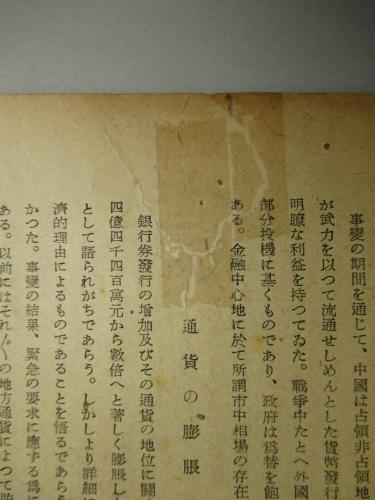 事變の期間を通じて、中國は占領非占領地
が武力を以つて流通せしめんとした貨幣發行
明瞭な利益を持つてゐた。戰爭中たとへ外國
部分投機に基くものであり、政府は爲替を飽
ある。金融中心地に於て所謂市中相場の存在
通貨の膨脹
銀行券發行の増加及びその通貨の地位に關
四億四千四百萬元から數倍へと著しく膨脹し
として語られがちであらう。しかしより詳細
濟的理由によるものであることを悟るであら
かつた。事變の結果、緊急の要求に應ずる爲に
ある。以前にはそれ〴〵の地方通貨によつて